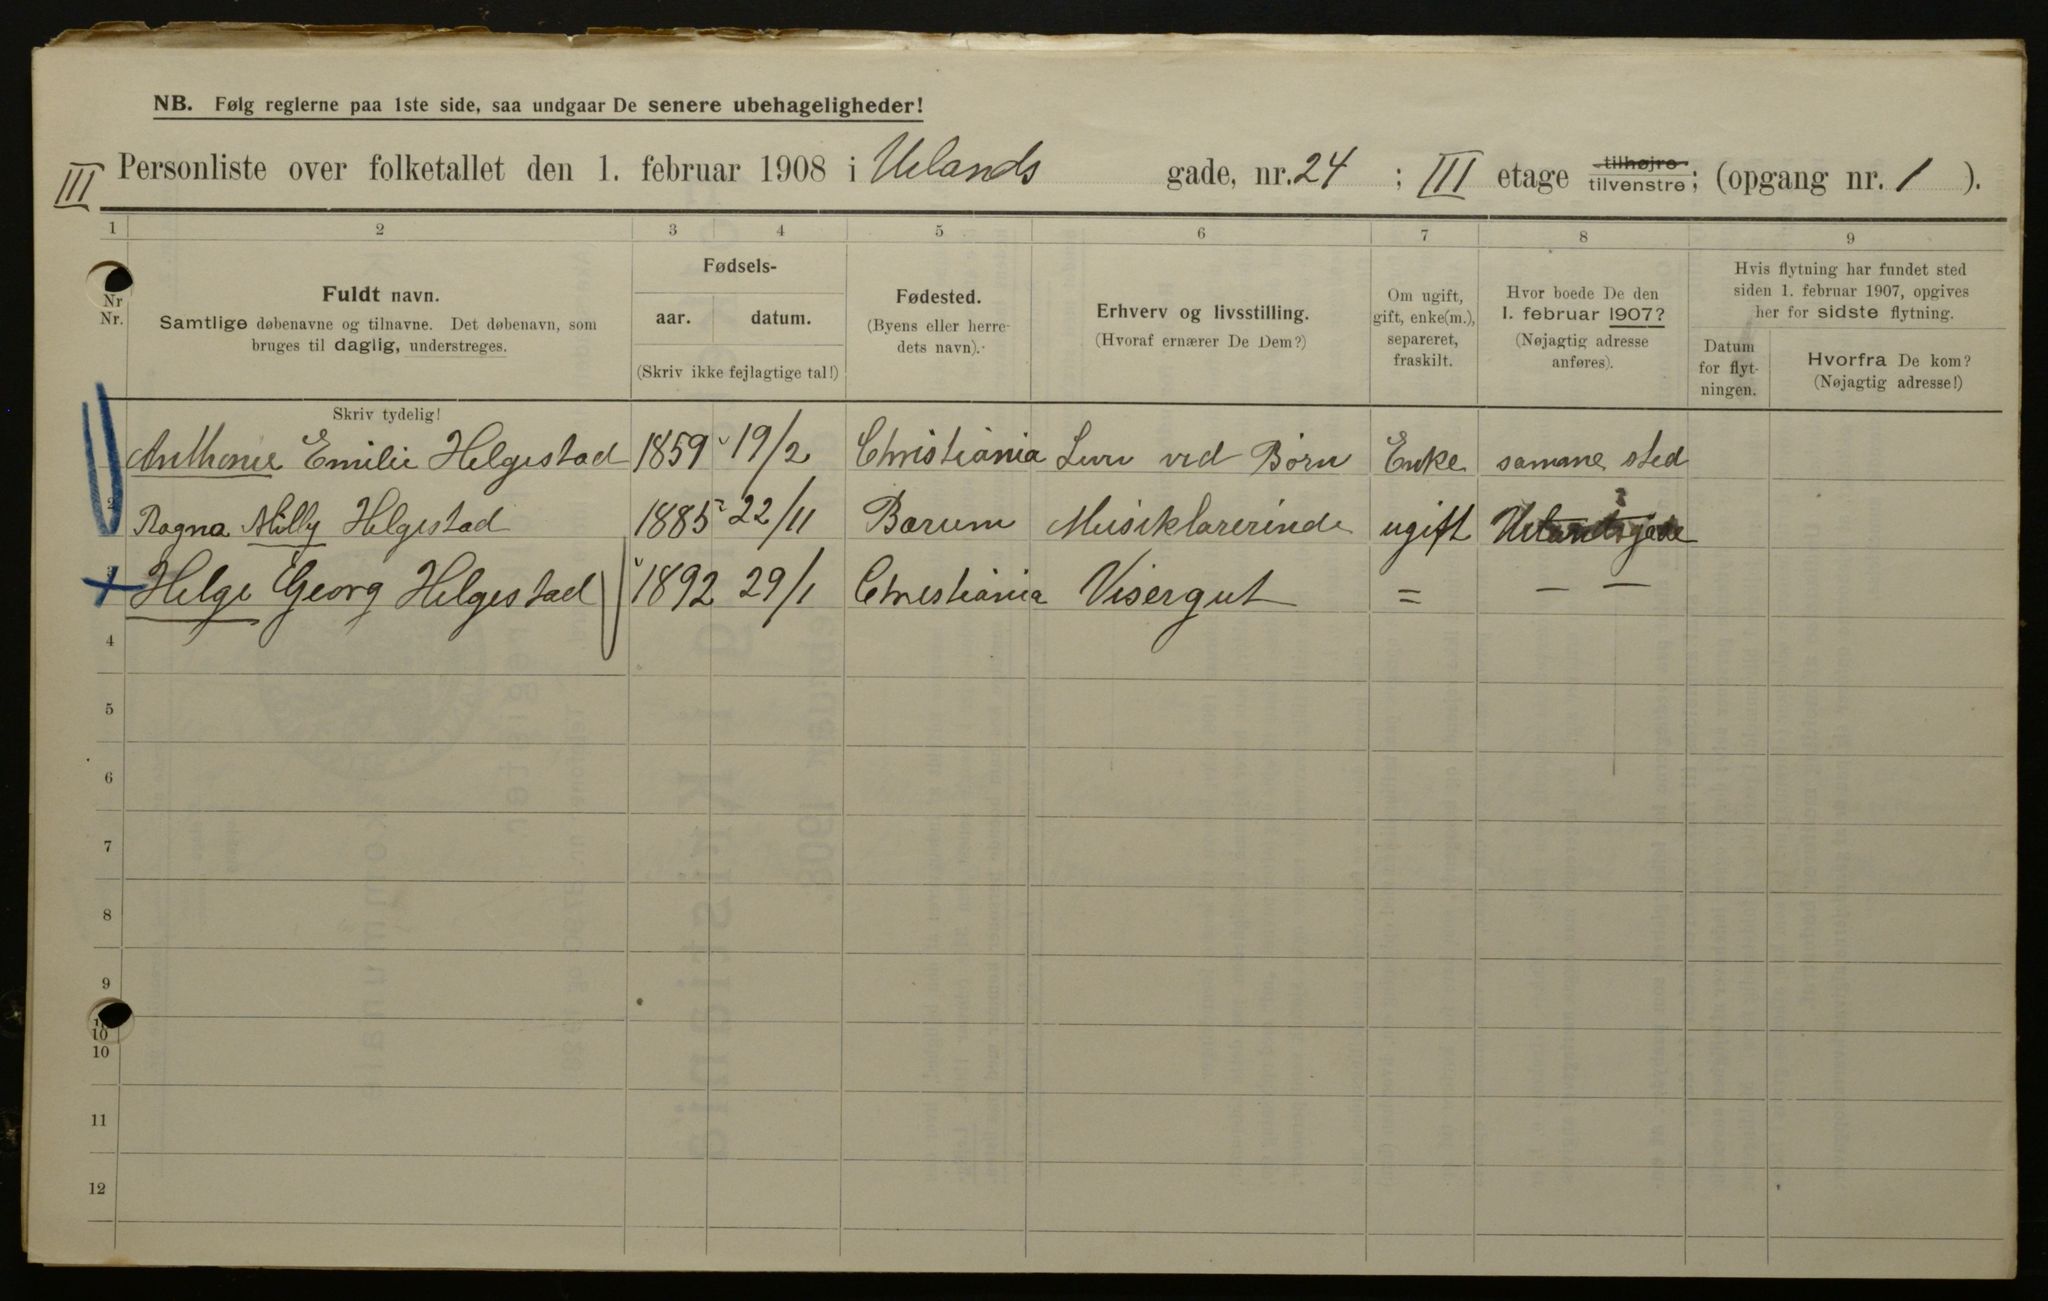 NB. Følg reglerne paa 1ste side, saa undgaar De senere ubehageligheder!
III Personliste over folketallet den 1. februar 1908 i Uelands gade, nr. 24 ; III etage tilhøjre tilvenstre; (opgang nr. 1 ).
1 2 3 4 5 6 7 8 9
Nr Nr.
Fuldt navn.
Samtlige døbenavne og tilnavne. Det døbenavn, som
bruges til daglig, understreges.
Skriv tydelig!
Fødsels-
aar. datum.
(Skriv ikke fejlagtige tal!)
Fødested.
(Byens eller herre-
dets navn).
Erhverv og livsstilling.
(Hvoraf ernærer De Dem?)
Om ugift,
gift, enke(m.),
separeret,
fraskilt.
Hvor boede De den
1. februar 1907?
(Nøjagtig adresse
anføres).
Hvis flytning har fundet sted
siden 1. februar 1907, opgives
her for sidste flytning.
Datum
for flyt-
ningen.
Hvorfra De kom?
(Nøjagtig adresse!)
Anthonie Emilie Helgestad 1859 19/2 Christiania Lever ved Børn Enke samme sted
2 Ragna Milly Helgestad 1885 22/11 Bærum Musiklærerinde ugift Uelandsgade
3 Helge Georg Helgestad 1892 29/1 Christiania Visergut = — —
4
5
6
7
8
9
10
10
11
12